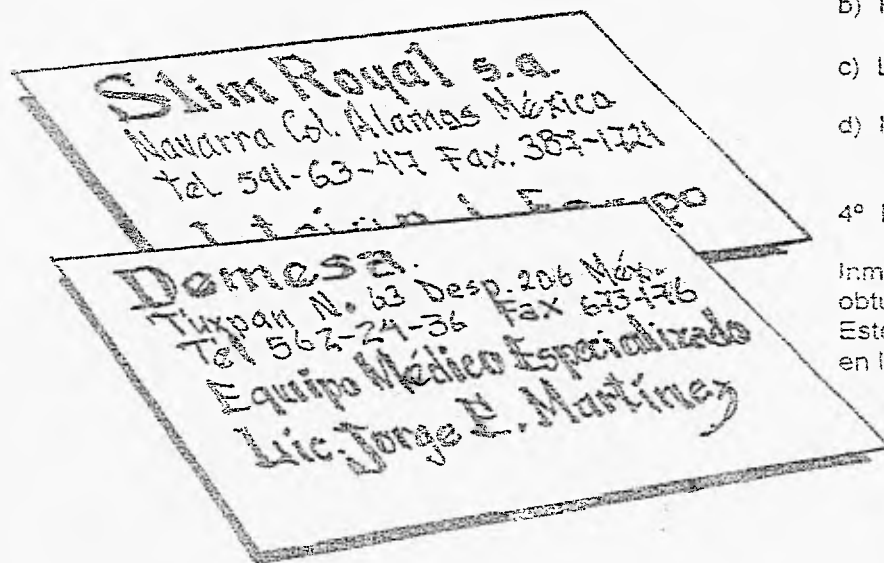 Slim Royal s.a.
Navarra Col. Alamos México
Tel 591-63-47 Fax. 387-1721
Demesa.
Tuxpan N. 63 Desp. 206 Méx.
Tel 562-24-36 Fax 673-176
Equipo Médico Especializado
Lic. Jorge E. Martínez
b)
c) L
d)
4º
Inm
obtu
Este
en l